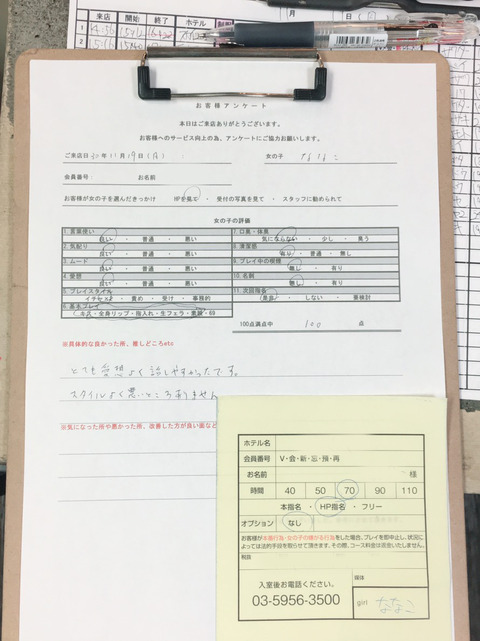 来店 開始 終了 ホテル
月
お客様アンケート
本日はご来店ありがとうございます。
お客様へのサービス向上の為、アンケートにご協力お願いします。
ご来店日 30年 11月 19日 (月) 女の子 ななこ
会員番号: お名前
お客様が女の子を選んだきっかけ HPを見て ・ 受付の写真を見て ・ スタッフに勧められて
女の子の評価
1. 言葉使い
良い ・ 普通 ・ 悪い
2. 気配り
良い ・ 普通 ・ 悪い
3. ムード
良い ・ 普通 ・ 悪い
4. 愛想
良い ・ 普通 ・ 悪い
5. プレイスタイル
イチャイチャ ・ 責め ・ 受け ・ 事務的
6. 基本プレイ
・全身リップ・指入れ・生フェラ・素股・69
7. 口臭・体臭
気にならない ・ 少し ・ 臭う
8. 清潔感
有り ・ 普通 ・ 無し
9. プレイ中の喫煙
無し ・ 有り
10. 名刺
無し ・ 有り
11. 次回指名
(是非) ・ しない ・ 要検討
100点満点中 100 点
※具体的な良かった所、推しどころets
とても愛想よく話しやすかったです。
スタイルよく悪いところありません
※気になった所や悪かった所、改善した方が良い面など
ホテル名
会員番号 V・会・新・忘・預・再
お名前 様
時間 40 50 70 90 110
本指名 ・ HP指名 ・ フリー
オプション なし
お客様が本番行為・女の子の嫌がる行為をした場合、プレイを即中止し、状況に
よっては法的手段を取らせて頂きます。その際、コース料金は返金いたしません。
入室後お電話ください。
03-5956-3500
媒体
girl ななこ